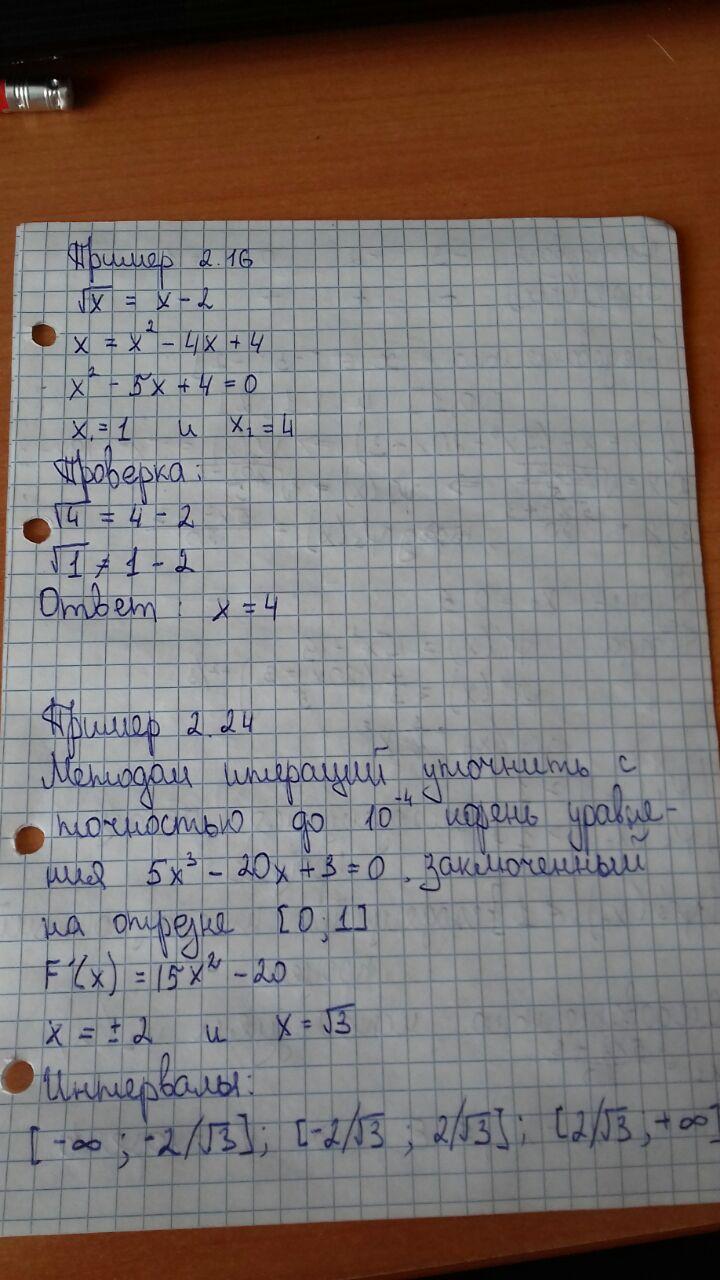 Пример 2.16
√x = x - 2
x = x² - 4x + 4
x² - 5x + 4 = 0
x₁ = 1 и x₂ = 4
Проверка:
√4 = 4 - 2
√1 ≠ 1 - 2
Ответ: x = 4
Пример 2.24
Методом итераций уточнить с
точностью до 10⁻⁴ корень уравне-
ния 5x³ - 20x + 3 = 0, заключенный
на отрезке [0; 1]
F'(x) = 15x² - 20
x = ±2 и x = √3
Интервалы:
[-∞; -2/√3]; [-2/√3; 2/√3]; [2/√3; +∞]